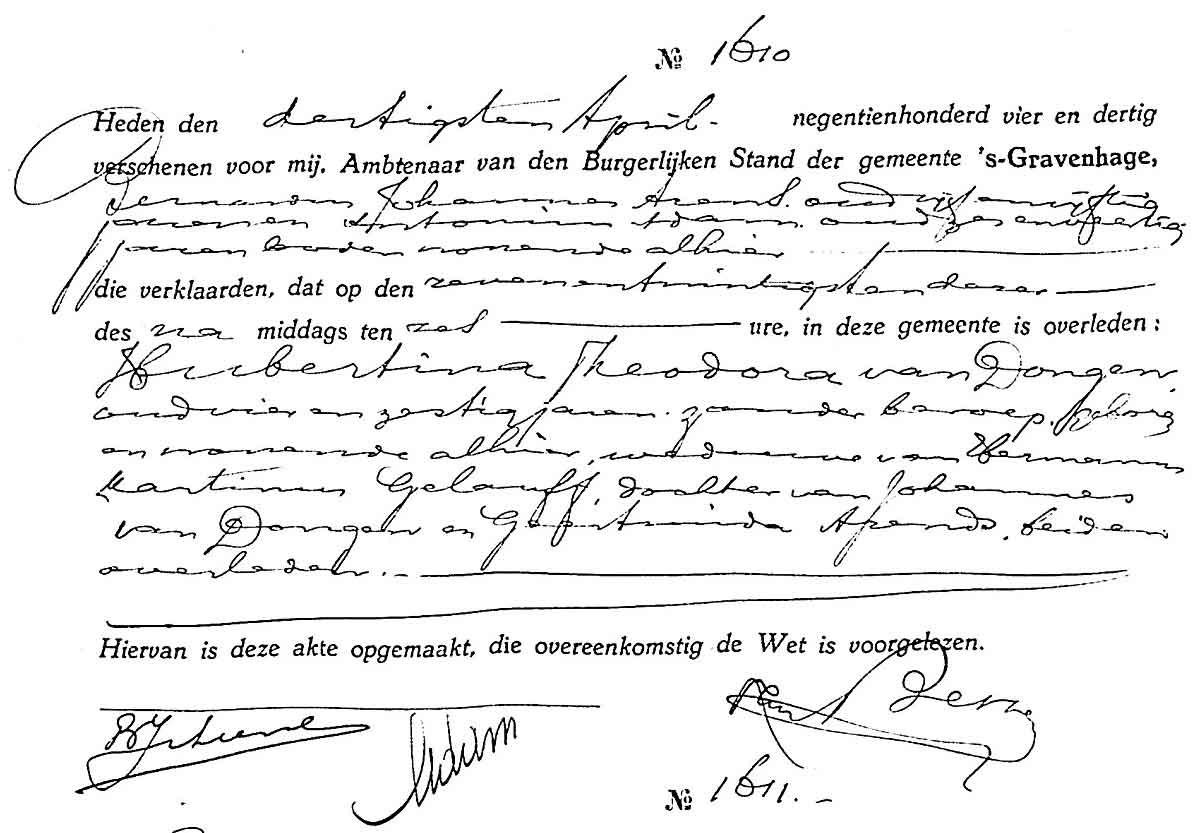 No 1610
Heden den dertigsten April. negentienhonderd vier en dertig
verschenen voor mij, Ambtenaar van den Burgerlijken Stand der gemeente 's-Gravenhage,
Bernardus Johannes Arens. oud vijfenvijftig
jaren en Antonius Adam. oud zesenveertig
jaren boden wonende alhier
die verklaarden, dat op den zevenentwintigsten dezer
des na middags ten zes ure, in deze gemeente is overleden:
Hubertina Theodora van Dongen,
oud vier en zestig jaren. zonder beroep. geboren
en wonende alhier, weduwe van Hermanus
Martinus Gelauff, dochter van Johannes
van Dongen en Geertruida Arends, beiden
overleden.
Hiervan is deze akte opgemaakt, die overeenkomstig de Wet is voorgelezen.
Adam
No 1611.